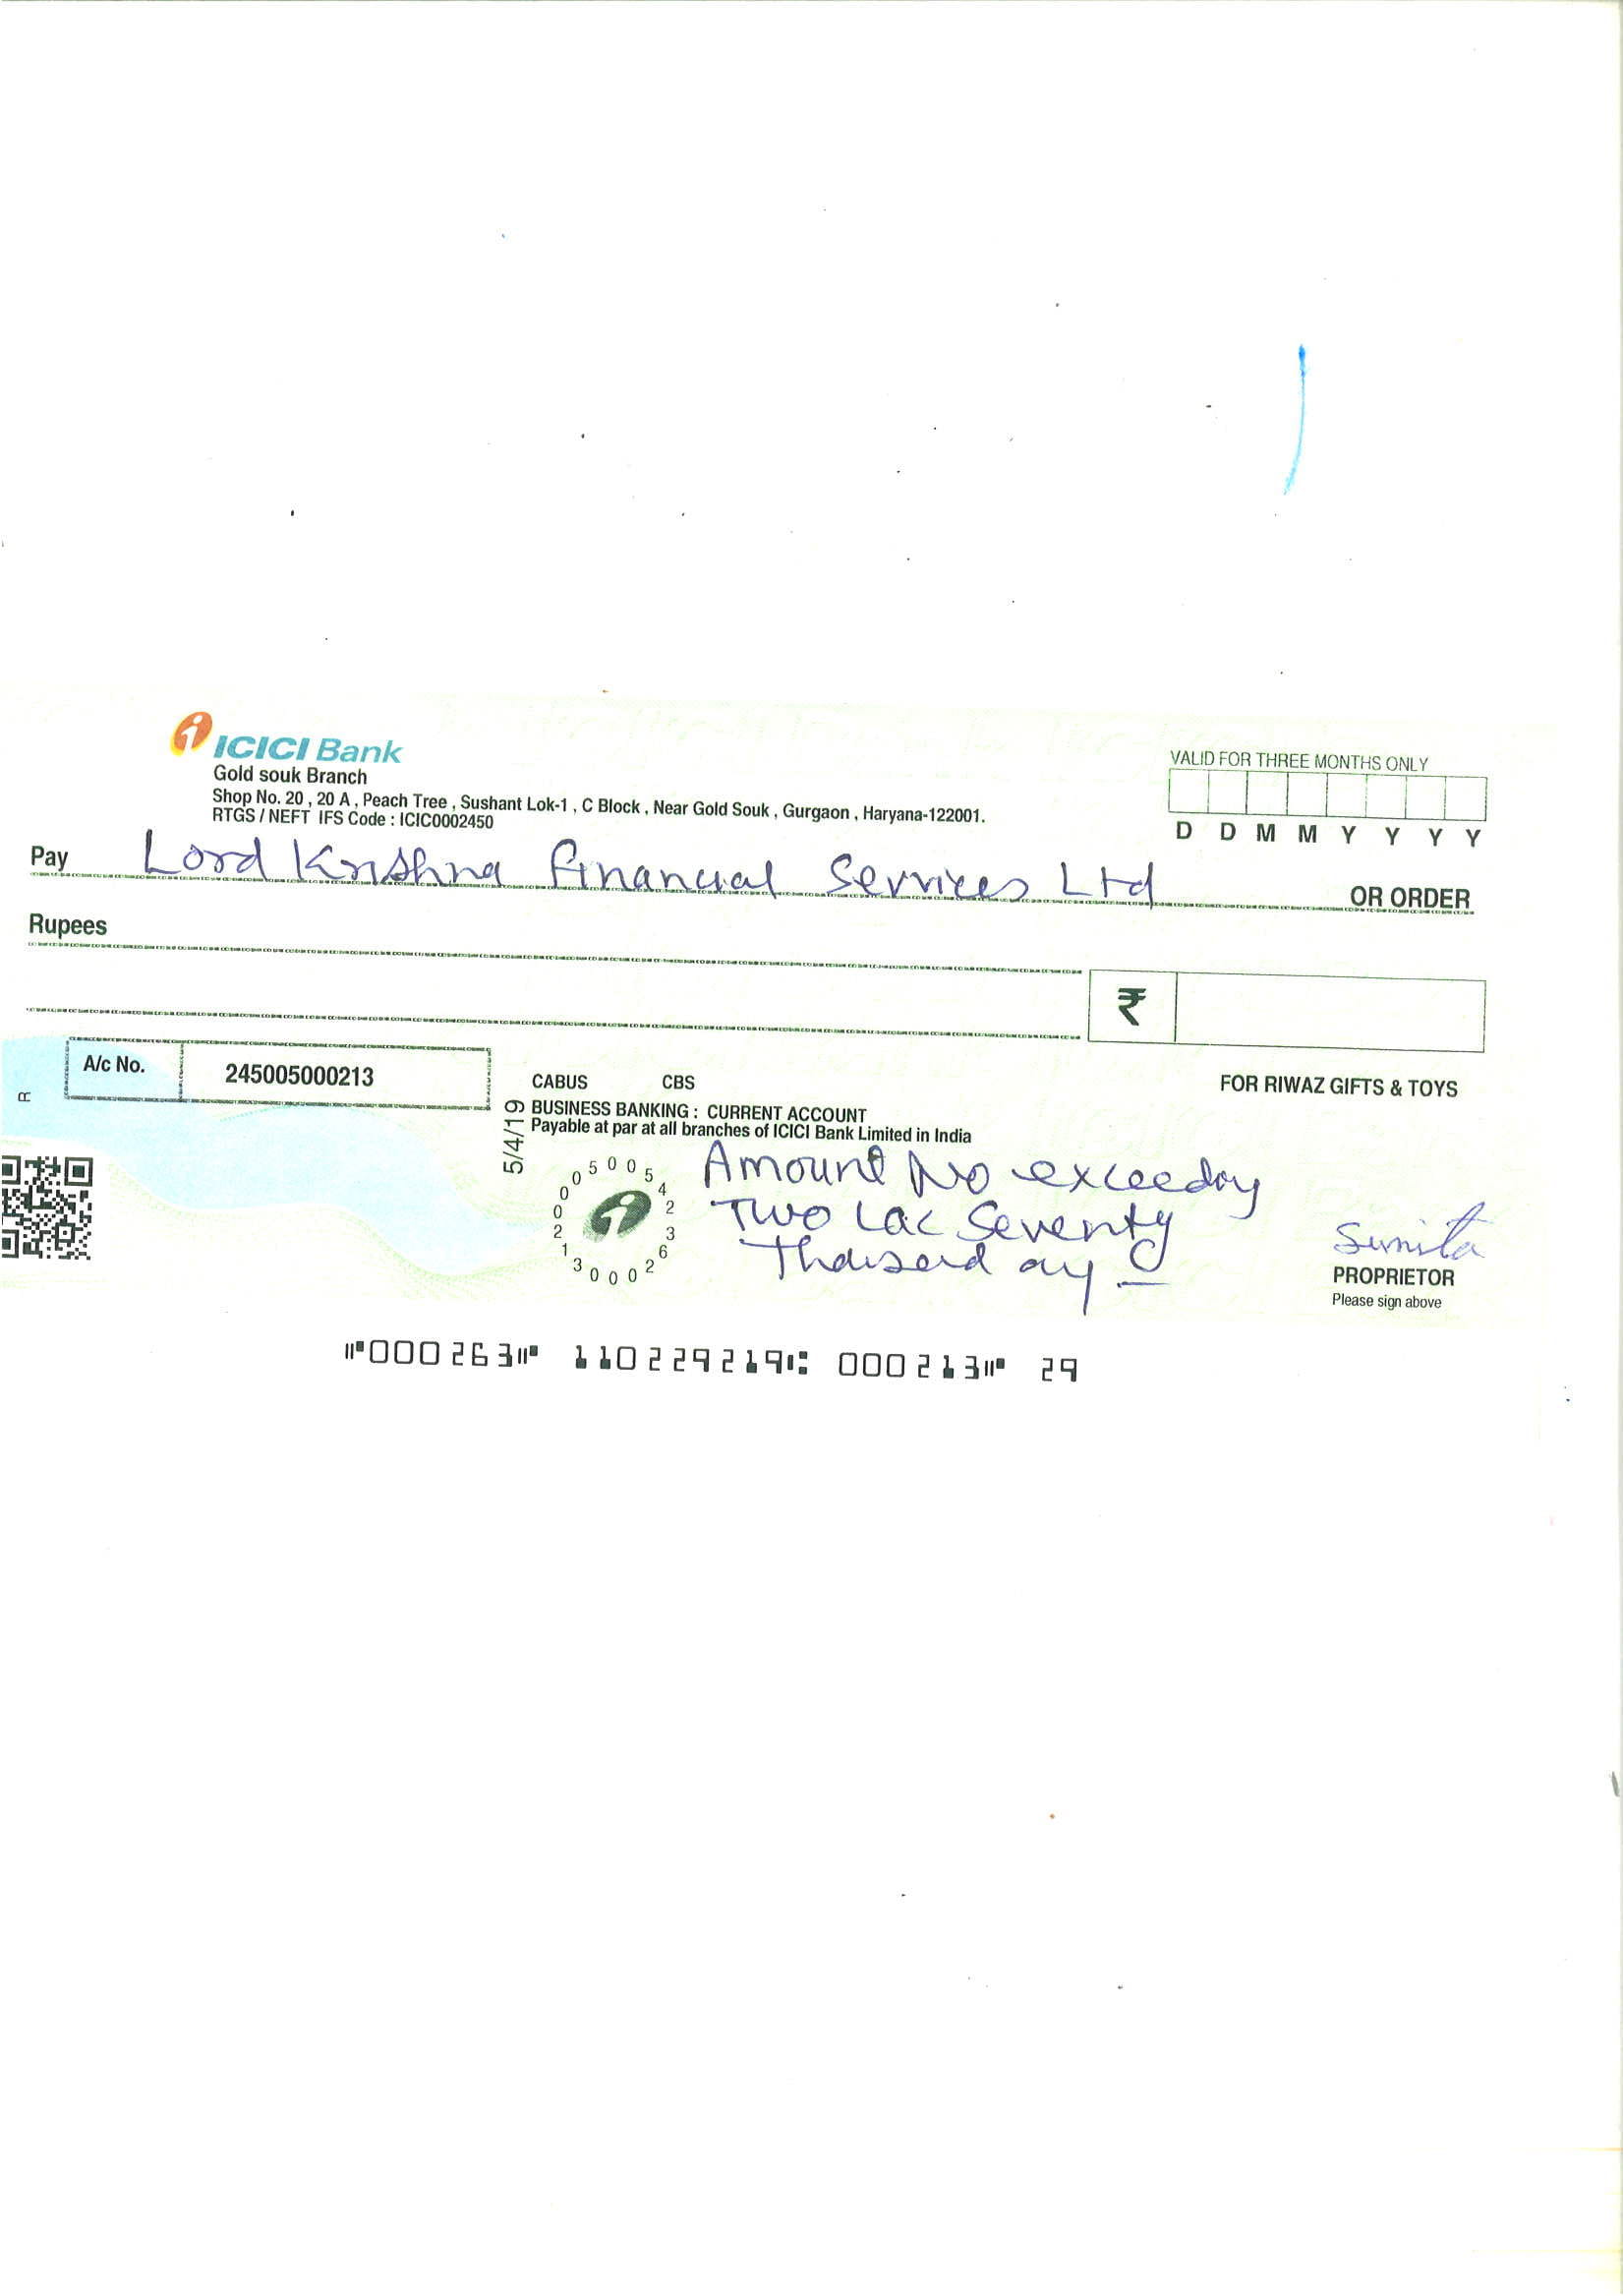 ICICI Bank
Gold souk Branch
Shop No. 20 , 20 A , Peach Tree , Sushant Lok-1 , C Block , Near Gold Souk , Gurgaon , Haryana-122001.
RTGS / NEFT IFS Code : ICIC0002450
VALID FOR THREE MONTHS ONLY
D D M M Y Y Y Y
Pay Lord Krishna Financial Services Ltd OR ORDER
Rupees
₹
A/c No. 245005000213
R
CABUS CBS
FOR RIWAZ GIFTS & TOYS
BUSINESS BANKING : CURRENT ACCOUNT
Payable at par at all branches of ICICI Bank Limited in India
5/4/19
245005000213000263
Amount No exceeding
Two Lac Seventy
Thousand
Sunita
PROPRIETOR
Please sign above
⑈000263⑈ 110229219⑆ 000213⑈ 29